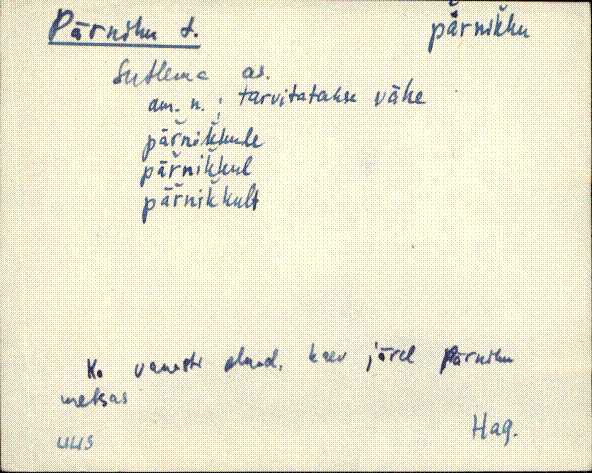 Pärniku t. pär̆nik̆ku
Sutlema as.
am. n.; tarvitatakse vähe
pär̆nik̆kule
pär̆nik̆kul
pär̆nik̆kult
K. vanasti olnud, kaev järel Pärniku
metsas
uus Hag.